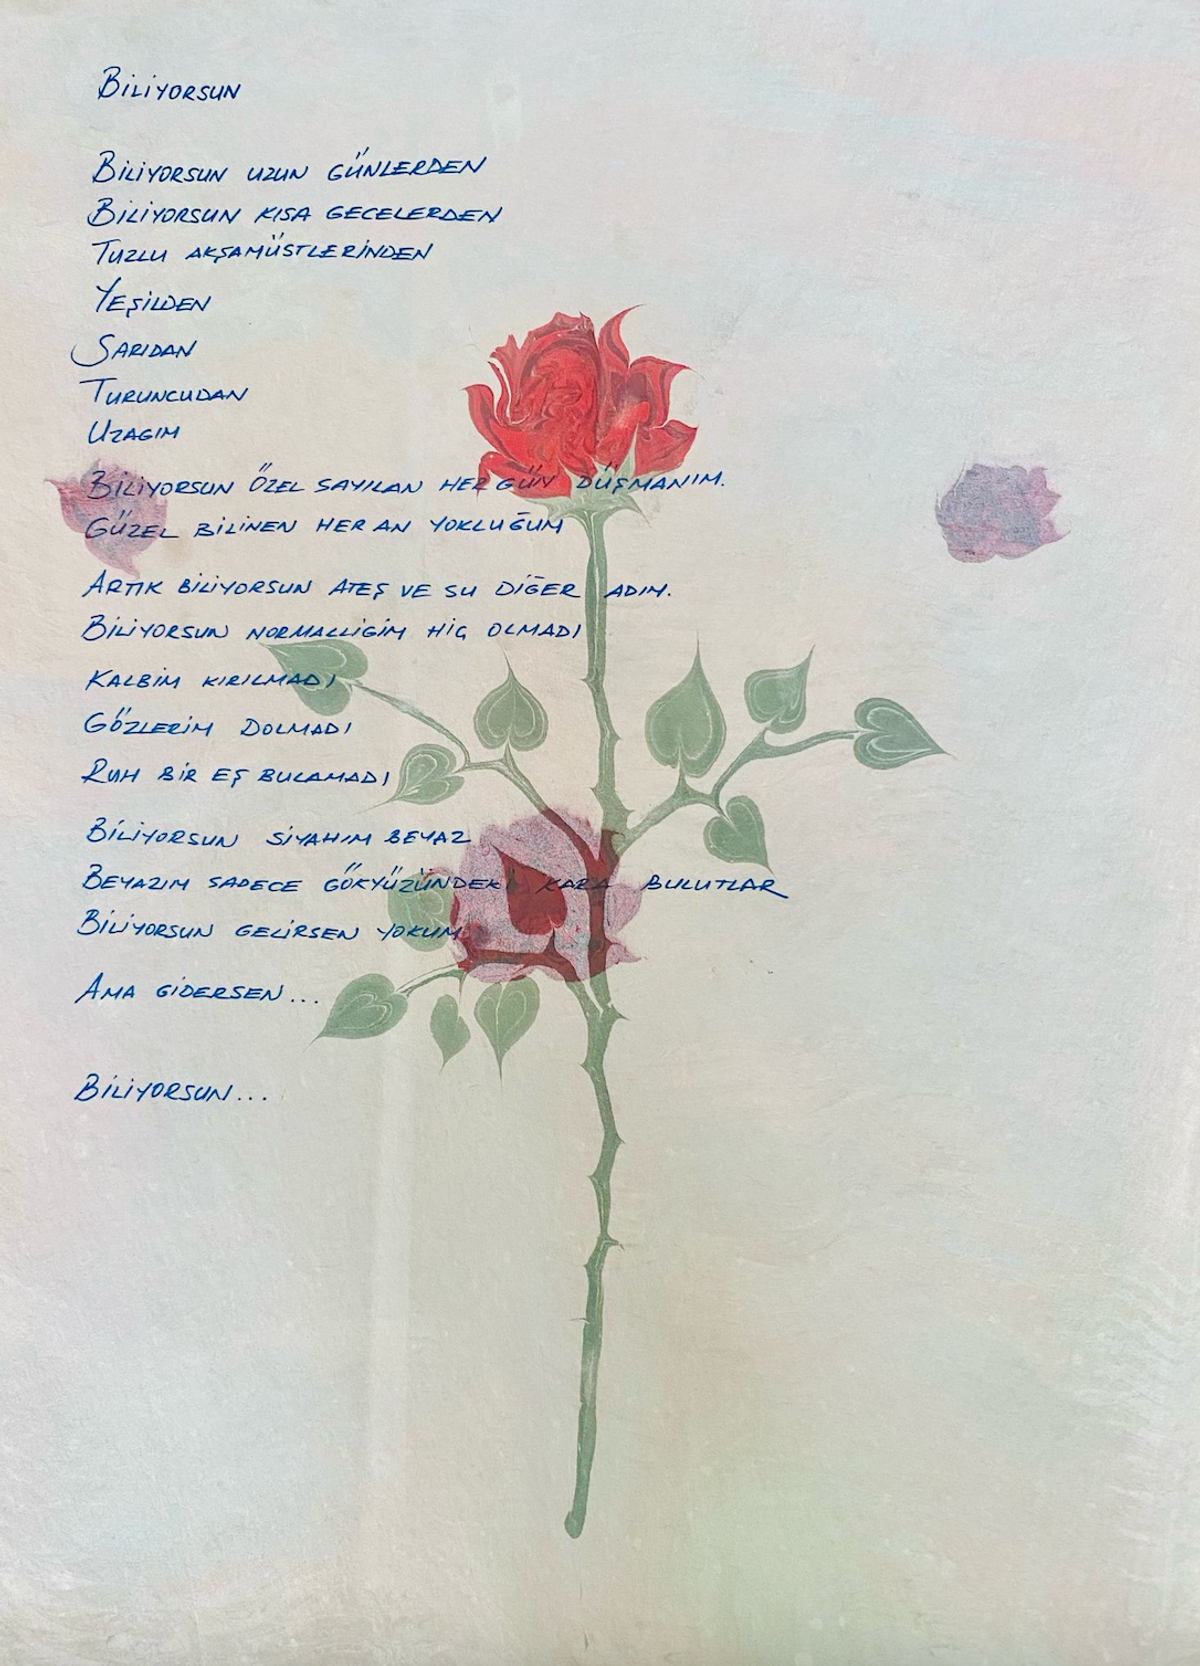 BİLİYORSUN
BİLİYORSUN UZUN GÜNLERDEN
BİLİYORSUN KISA GECELERDEN
TUZLU AKŞAMÜSTLERİNDEN
YEŞİLDEN
SARIDAN
TURUNCUDAN
UZAGIM
BİLİYORSUN ÖZEL SAYILAN HER GÜN DÜŞMANIM.
GÜZEL BİLİNEN HER AN YOKLUĞUM
ARTIK BİLİYORSUN ATEŞ VE SU DİĞER ADIM.
BİLİYORSUN NORMALLİGİM HİÇ OLMADI
KALBİM KIRILMADI
GÖZLERİM DOLMADI
RUH BİR EŞ BULAMADI
BİLİYORSUN SİYAHIM BEYAZ
BEYAZIM SADECE GÖKYÜZÜNDEKİ KARA BULUTLAR
BİLİYORSUN GELİRSEN YOKUM
AMA GİDERSEN...
BİLİYORSUN...